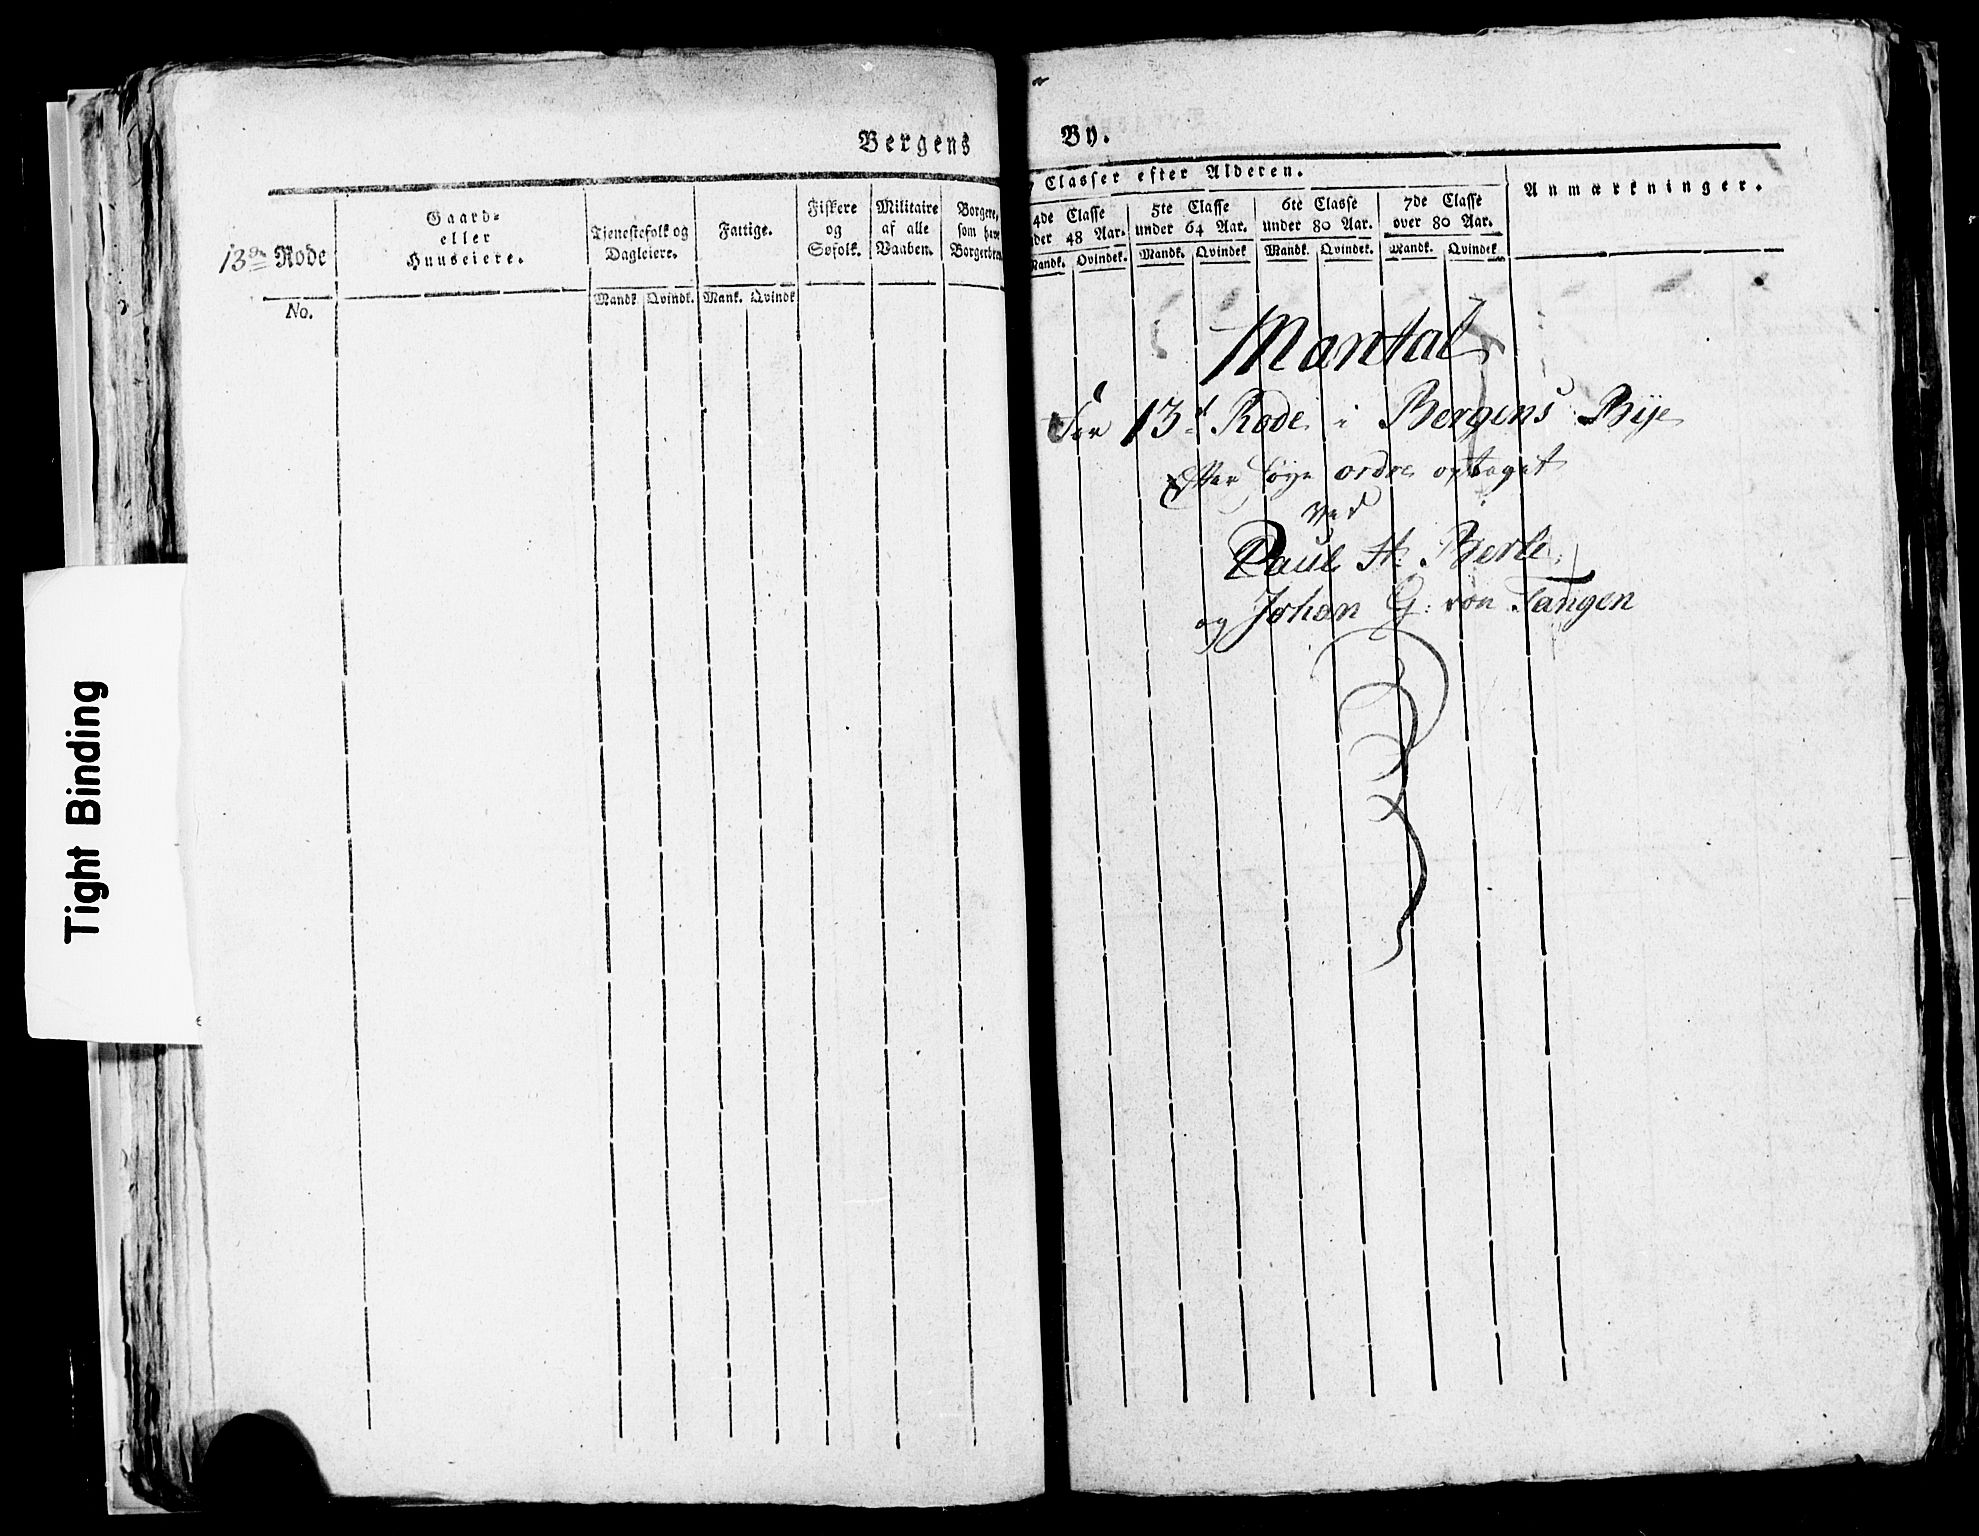 Tight Binding
Bergens By.
13de Rode
No.
Gaard-
eller
Huuseiere.
Tjenestefolk og
Dagleiere.
Mandk. Qvindk.
Fattige.
Mank. Qvindk
Fiskere
og
Søfolk.
Militaire
af alle
Vaaben.
Borgere,
som have
Classer efter Alderen.
4de Classe
48 Aar.
Mandk. Qvindek.
5te Classe
under 64 Aar.
Mandk. Qvindek
6te Classe
under 80 Aar.
Mandk. Qvindek.
7de Classe
over 80 Aar.
Mandk. Qvindek.
Anmærkninger.
Mantal
For 13d Rode i Bergens Bye
Efter høye ordre optaget
ved
Paul H: Berle
og Johan G: von Tangen